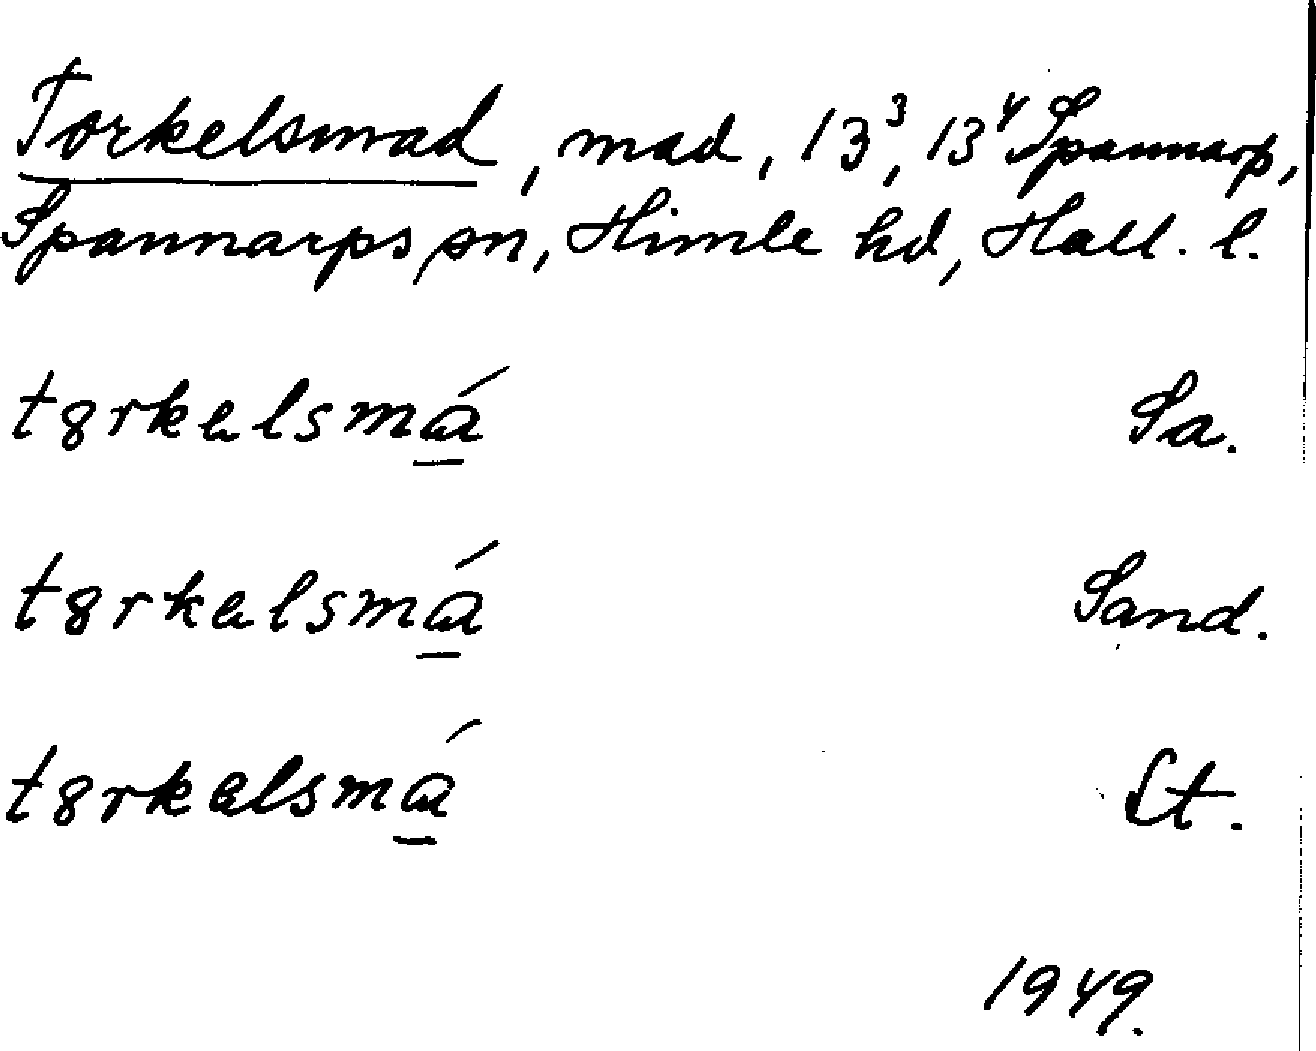 Torkelsmad, mad, 13³, 13⁴ Spannarp,
Spannarps sn, Himle hd, Hall. l.
tȣrkəlsmá̱ Sa.
tȣrkəlsmá̱ Sand.
tȣrkəlsmá̱ Lt.
1949.